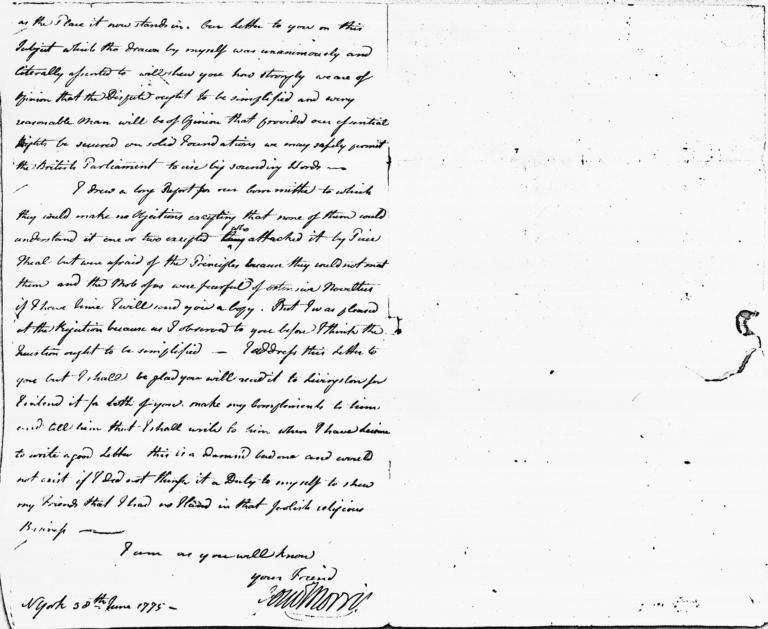 as the Place it now stands in. Our Letter to you on this
Subject which tho drawn by myself was unanimously and
literally assented to will shew you how strongly we are of
Opinion that the Dispute ought to be simplified and every
reasonable Man will be of Opinion that provided our essential
Rights be secured on solid Foundations we may safely permit
the British Parliament to use big sounding Words —
I drew a long Report for our Committee to which
they could make no Objections excepting that none of them could
understand it one or two excepted who attacked it by Piece
Meal but were afraid of the Principles because they could not meet
them and the Mob of us were fearful of extensive Novelties
if I have time I will send you a Copy. But I was pleased
at the Rejection because as I observed to you before I think the
Question ought to be simplified — I address this Letter to
you but I shall be glad you will read it to Livingston for
I intend it for both of you. make my Compliments to him
and tell him that I shall write to him when I have Leisure
to write a good Letter this is a damn'd bad one and would
not exist if I did not think it a Duty to myself to shew
my Friends that I had no Hand in that foolish religious
Business —
I am as you well know
your Friend
Gouv Morris
N York 30th June 1775 –